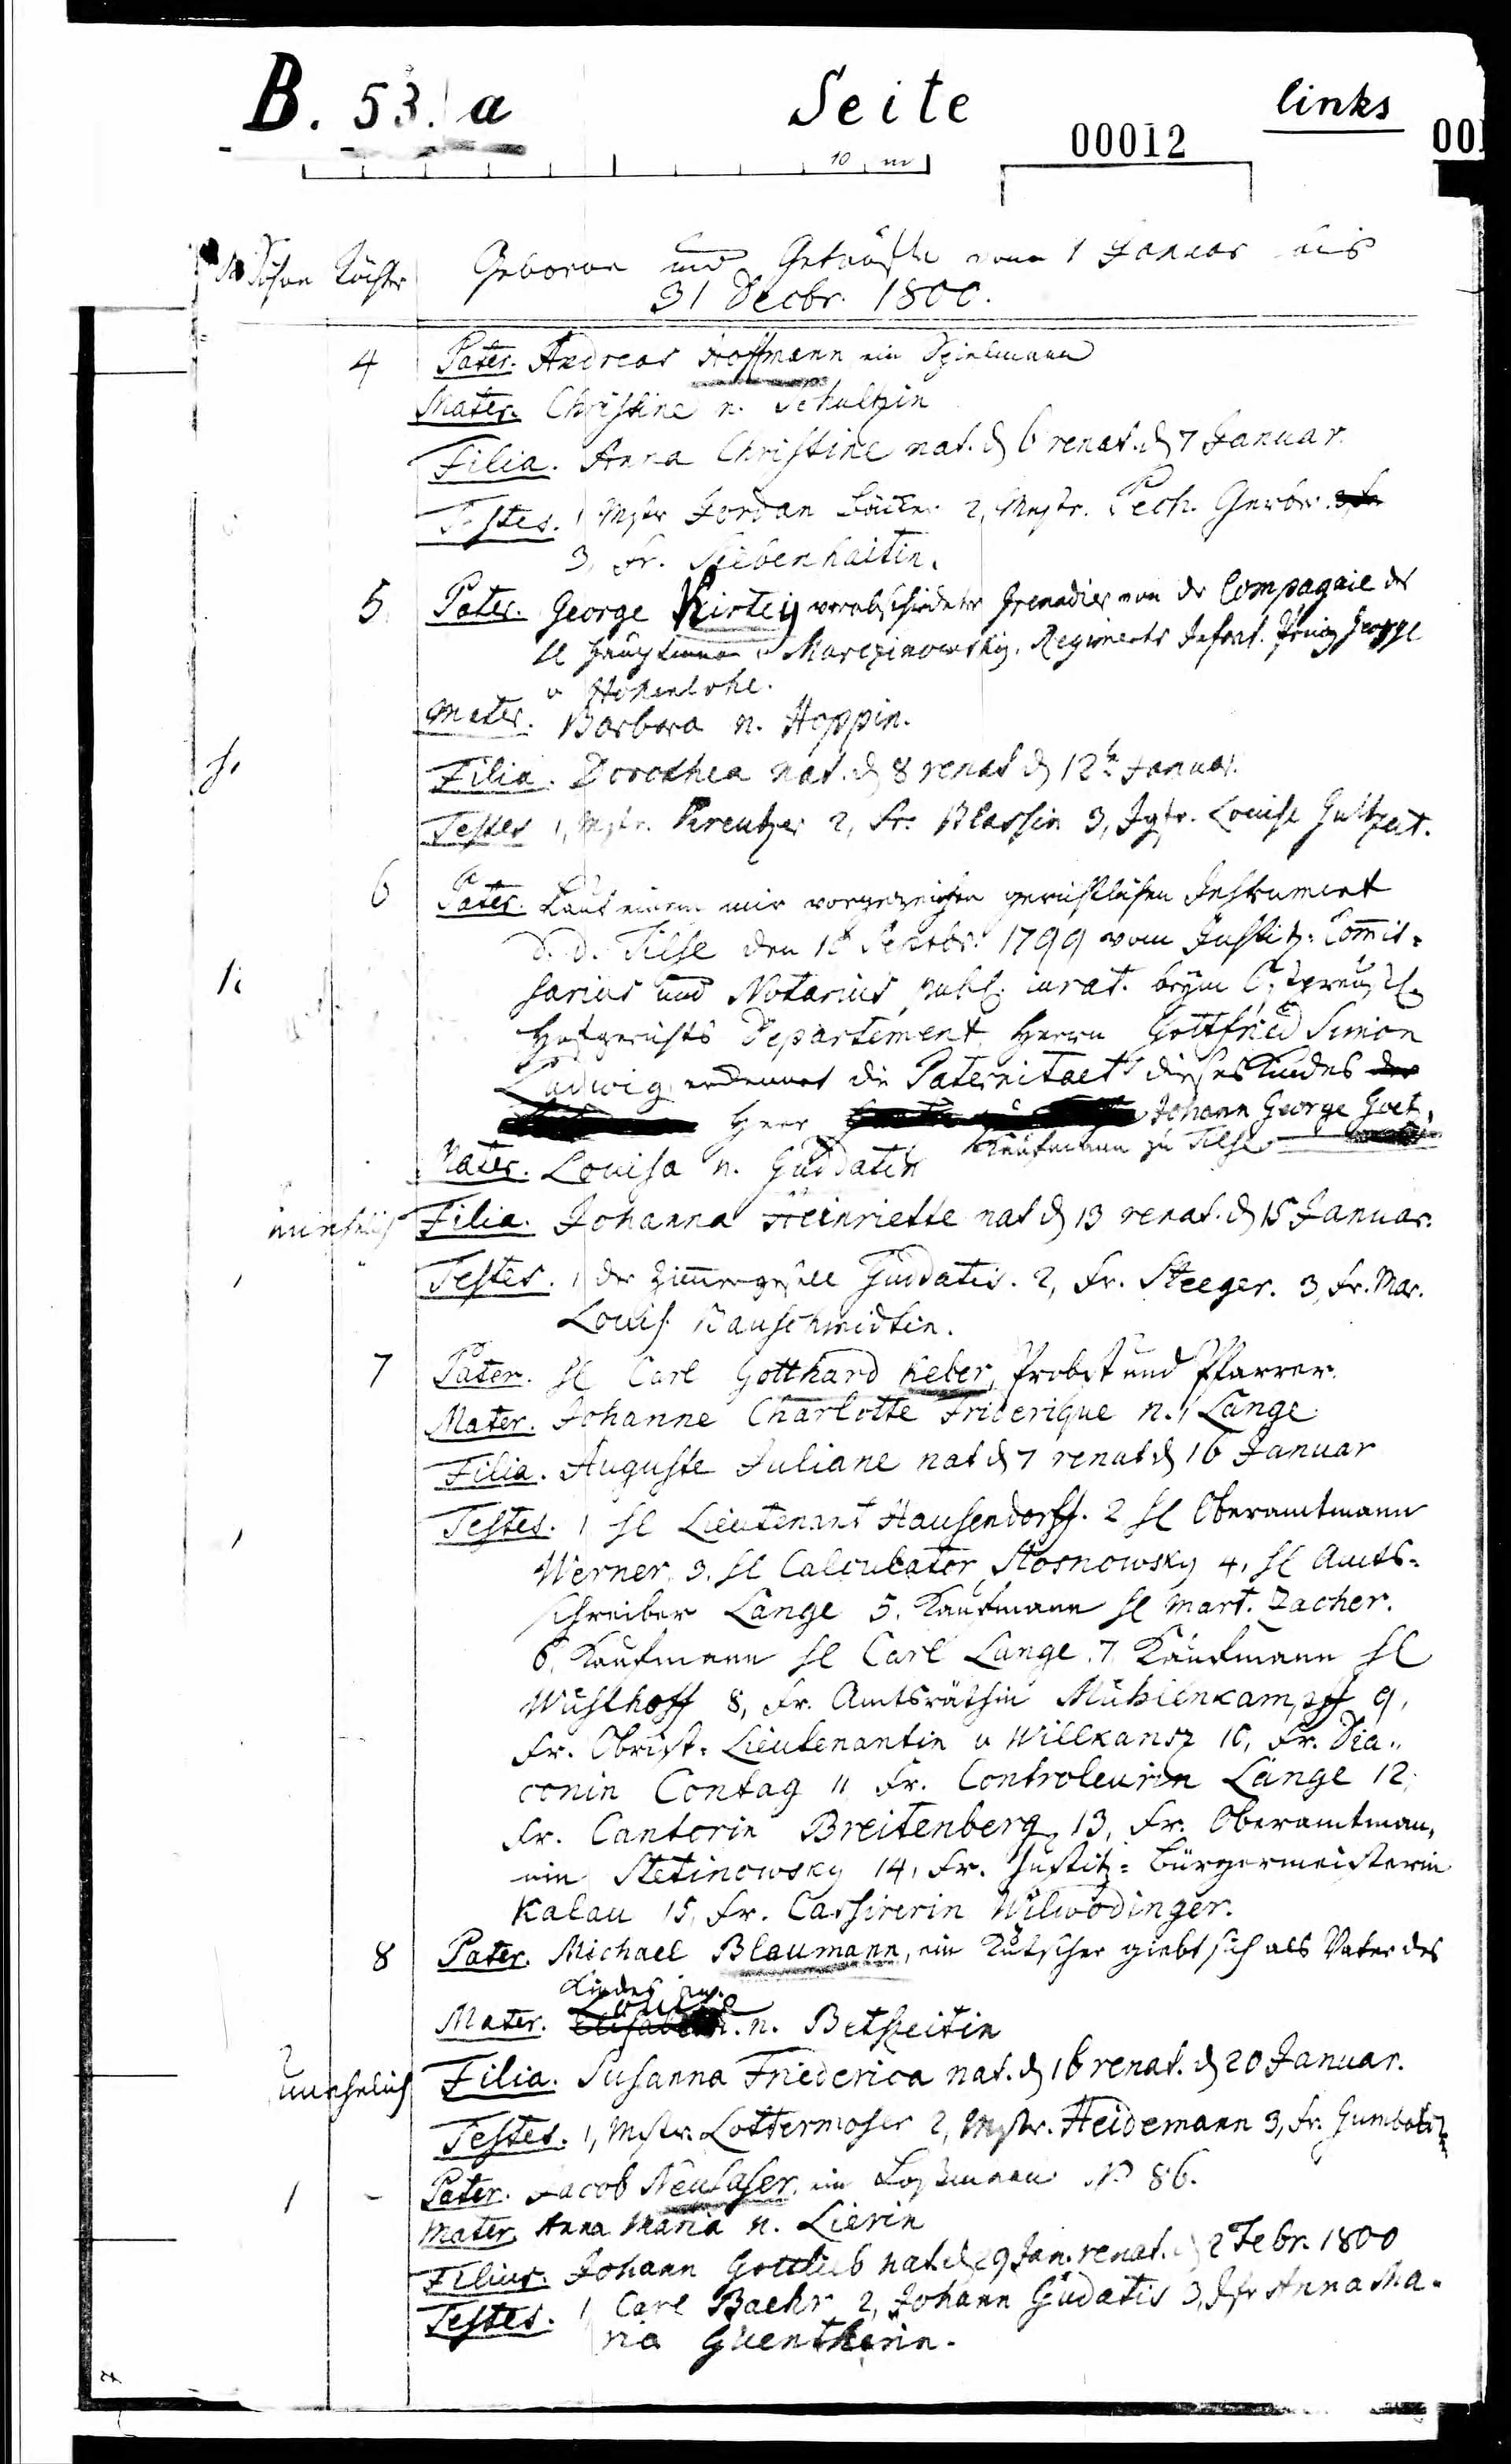 B. 53. a Seite links
10 m 00012 001
Söhne Töchtr Geborne und Getaufte vom 1 Januar bis
31 Decbr. 1800.
4 Pater. Andreas Hoffmann ein Spielmann
Mater. Christine n. Schultzin
Filia. Anna Christine nat. d 6 renat. d 7 Januar.
Testes. 1 Mstr Jordan Bäcker 2, Mstr. Pech. Gerbr. 3, fr
3, Fr. Siebenhaitin.
5. Pater. George Kirtey verabschiedeter Grenadier von der Compagnie des
H Hauptmann v Marczinowsky, Regiments Infant. Prinz George
v Hohenlohe.
Mater. Barbara n. Hoppin.
Filia. Dorothea nat. d 8 renat d 12t Januar.
Testes 1, Mstr. Kreutzer 2, Fr. Blassin 3, Jgfr. Louise Gutzeit.
6 Pater. Laut einem mir vorgezeigten gerichtlichen Instrument
d. d. Tilse den 18 Septbr. 1799 vom Justitz-Commis-
1. sarius und Notarius publ. iurat. beym Ostpreuß
Hofgerichts Departement Herrn Gottfried Simon
Ludwig erkennet die Paternitaet dieses Kindes der
Herr Johann George Goet,
Kaufmann zu Tilse
Mater. Louisa n. Guddatin
unehelich Filia. Johanna Heinriette nat d 13 renat. d 15 Januar.
Testes. 1 der Zimmergesell Guddatis. 2, Fr. Steeger. 3, Fr. Mar.
Louis. Bauschmidtin.
7 Pater. H Carl Gotthard Keber, Probst und Pfarrer.
Mater. Johanne Charlotte Friderique n. Lange
Filia. Auguste Juliane nat d 7 renat d 16 Januar
Testes. 1 H Lieutenant Hausendorff. 2 H Oberamtmann
Werner. 3. H Calculator Stosnowsky 4, H Amts-
schreiber Lange 5. Kaufmann H Mart. Zacher.
6. Kaufmann H Carl Lange. 7 Kaufmann H
Wüsthoff 8, Fr. Amtsräthin Mühlenkampff 9,
Fr. Obrist-Lieutenantin v Willkansz 10, Fr. Dia-
conin Contag 11 Fr. Controleurin Lange 12,
Fr. Cantorin Breitenberg, 13, Fr. Oberamtman,
nin Stetinowsky 14, Fr. Justitz-Bürgermeisterin
Kalau 15, Fr. Cassirerin Wilwodinger.
8 Pater. Michael Blaumann, ein Kutscher giebt sich als Vater des
Kindes an.
Louise
Mater. Elisabeth. n. Betzkeitin
unehelich Filia. Susanna Friederica nat. d 16 renat. d 20 Januar.
Testes. 1, Mstr. Lottermoser 2, Mstr. Heidemann 3, Fr. Gumboldtz
1 - Pater. Jacob Neusaser, ein Loßmann No 86.
Mater. Anna Maria n. Lierin
Filius. Johann Gottlieb nat. d 29 Jan. renat. d 2 Febr. 1800
Testes. 1 Carl Baehr 2, Johann Gudatis 3, Jfr Anna Ma-
ria Guentherin.